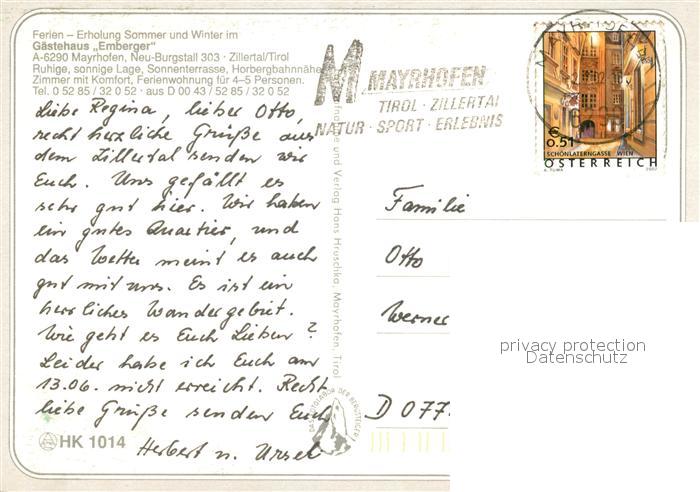 Ferien – Erholung Sommer und Winter im
Gästehaus „Emberger"
A-6290 Mayrhofen, Neu-Burgstall 303 · Zillertal/Tirol
Ruhige, sonnige Lage, Sonnenterrasse, Horbergbahnnähe
Zimmer mit Komfort, Ferienwohnung für 4–5 Personen.
Tel. 0 52 85 / 32 0 52 · aus D 00 43 / 52 85 / 32 0 52
Liebe Regina, lieber Otto,
recht herzliche Grüße aus
dem Zillertal senden wir
Euch. Uns gefällt es
sehr gut hier. Wir haben
ein gutes Quartier, und
das Wetter meint es auch
gut mit uns. Es ist ein
herrliches Wandergebiet.
Wie geht es Euch Lieben?
Leider habe ich Euch am
13.06. nicht erreicht. Recht
liebe Grüße senden Euch
Herbert u. Ursel
HK 1014
und Verlag Hans Hruschka, Mayrhofen, Tirol
M MAYRHOFEN
TIROL · ZILLERTAL
NATUR · SPORT · ERLEBNIS
€
0.51
SCHÖNLATERNGASSE WIEN
ÖSTERREICH
A. TUMA 2002
Familie
Otto
Werner
D 077
privacy protection
Datenschutz